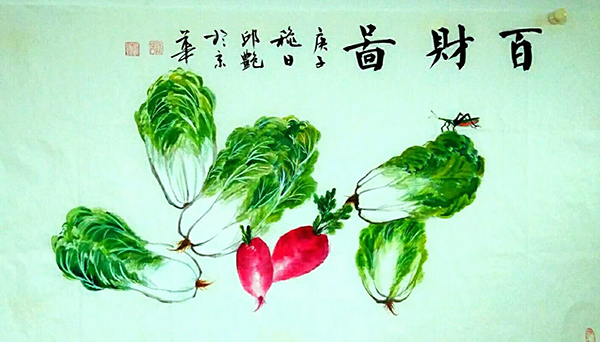 百財啚
庚子
穐日
邱艷
於京
華